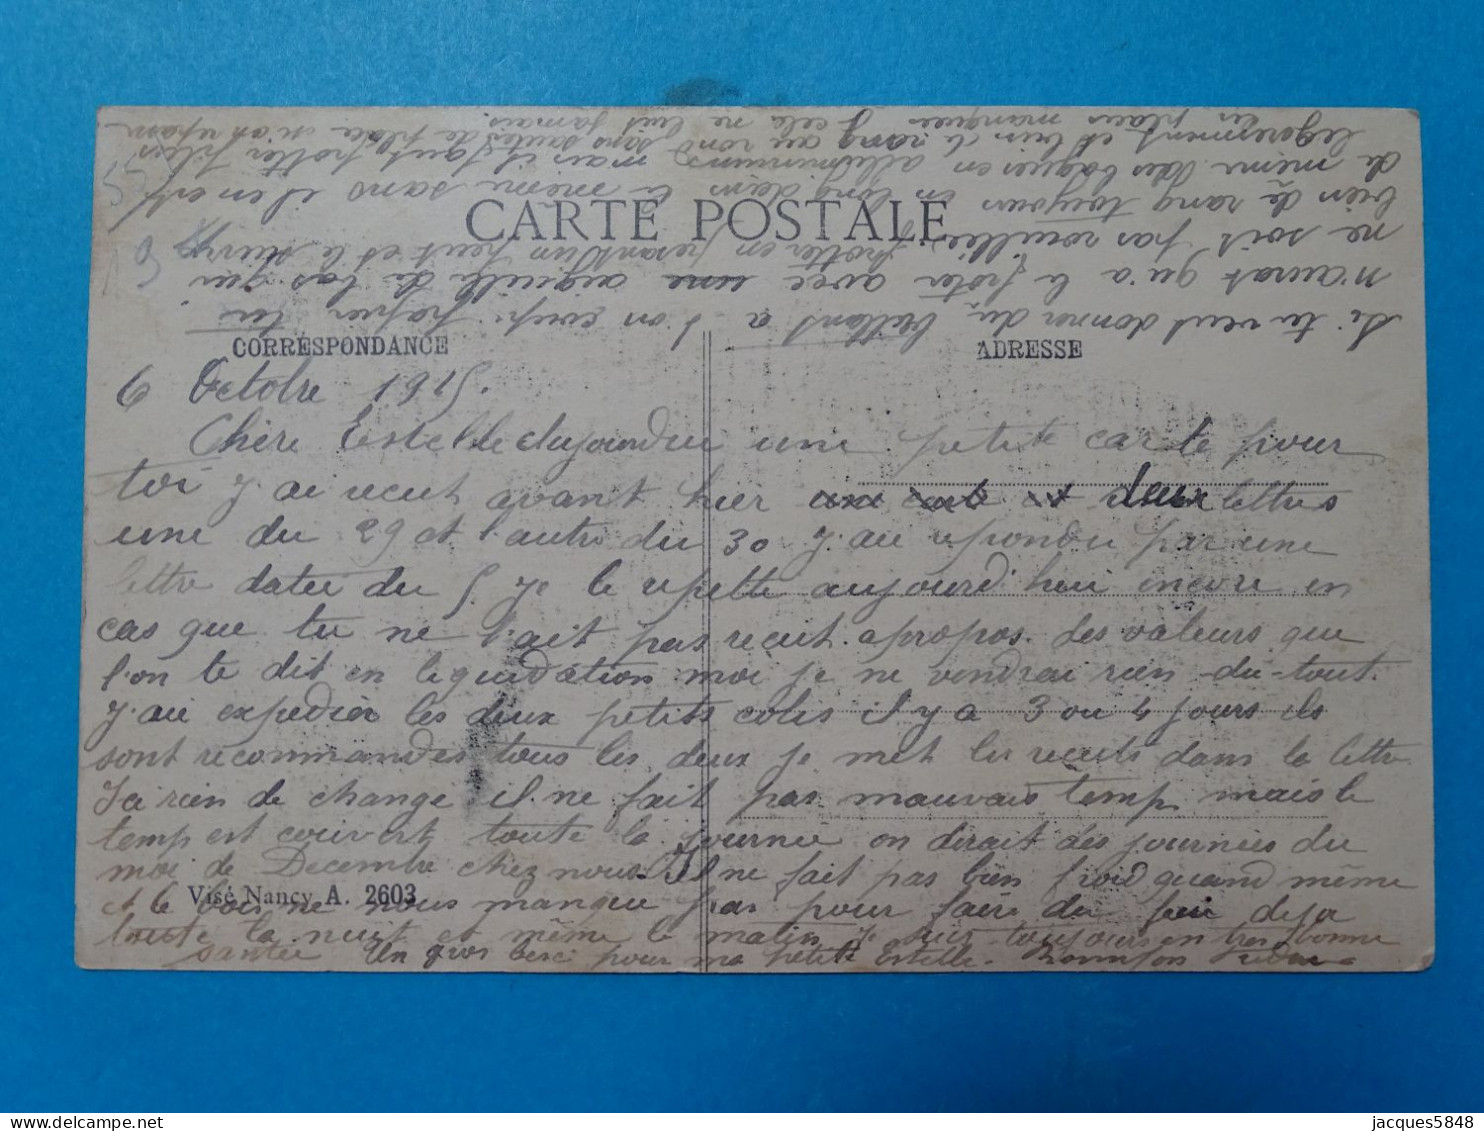 CARTE POSTALE
CORRESPONDANCE
ADRESSE
6 Octobre 1915.
Chère Estelle aujourdui une petite carte pour
toi J'ai recut avant hier deux lettres
une du 29 et l'autre du 30 J'ai repondu par une
lettre datée du 5. Je le repette aujourd'hui encore en
cas que tu ne l'ait pas recut. apropos des valeurs que
l'on te dit en liquidation moi je ne vendrai rien du tout.
J'ai expedier les deux petits colis il y a 3 ou 4 jours ils
sont recommandes tous les deux je met les recuts dans la lettre
Ici rien de change il ne fait pas mauvais temp mais le
temp est couvert toute la journée on dirait des journées du
moi de Decembre chez nous. Il ne fait pas bien froid quand même
et le bois ne nous manque pas pour faire du feu deja
toute la nuit et même le matin je suis toujours en tres bonne
santée Un gros beci pour ma petite Estelle.
Visé Nancy A. 2603
Si tu veut donner du brillant a l'on coup papier tu
n'aurat qu'a le froter avec une aiguille de bas qui
ne soit pas rouillée, frotter en presant un peut et le suivre
bien de rang toujours en long dans le même sans il en est
de même des bagues en alluminium mais il faut frotter tres
legerement et bien de rang au rond sans sauter de place si on repasse
en place manquer cela ne luit jamais
jacques5848